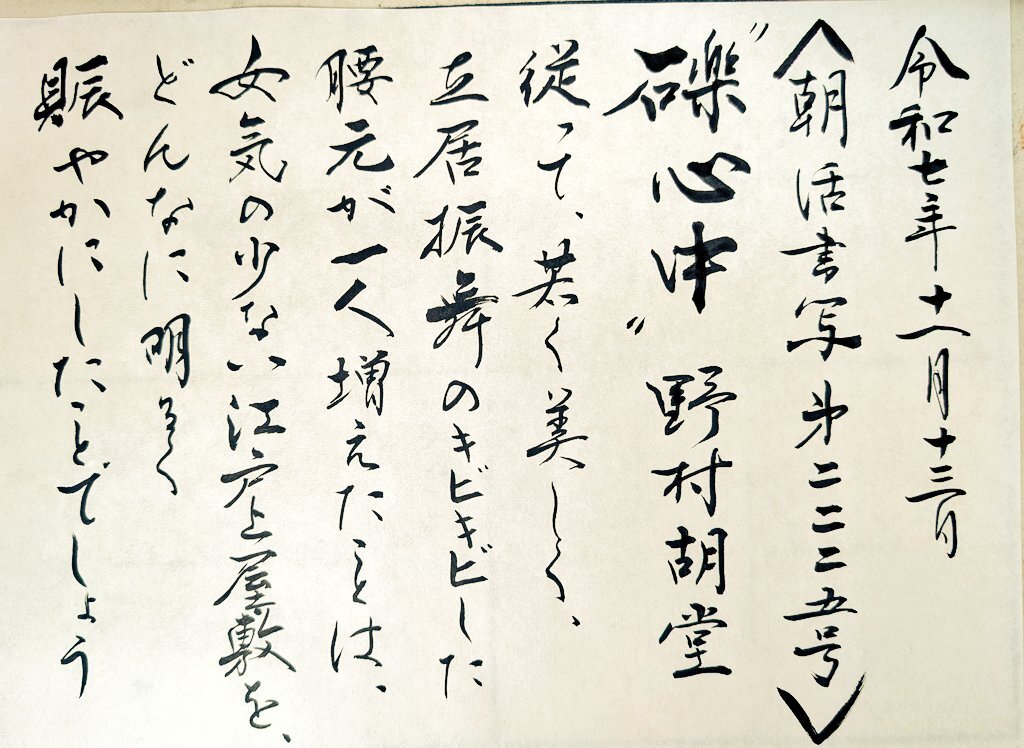 令和七年十一月十三日
〈朝活書写第二二二五号〉
〝礫心中〟野村胡堂
従って、若く美しく、
立居振舞のキビキビした
腰元が一人増えたことは、
女気の少ない江戸上屋敷を、
どんなに明るく
賑やかにしたことでしょう